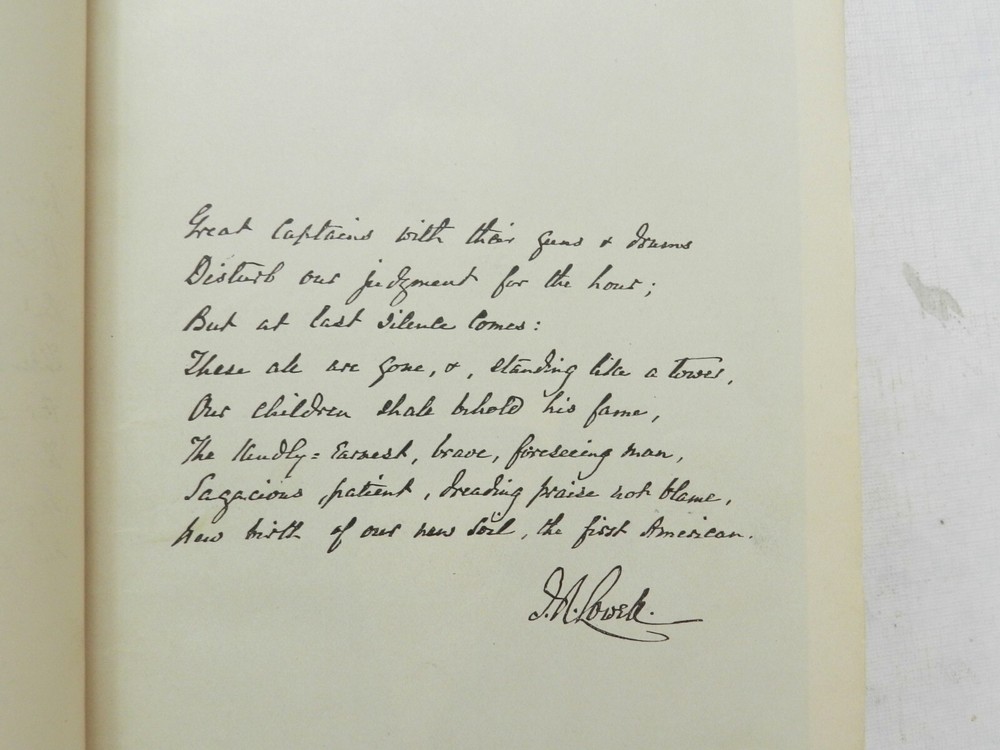 Great Captains with their guns & drums
Disturb our judgment for the hour;
But at last Silence comes:
These all are gone, &, standing like a tower,
Our children shall behold his fame,
The Kindly-Earnest, brave, foreseeing man,
Sagacious, patient, dreading praise not blame,
New birth of our new Soil, the first American.
J.R. Lowell.